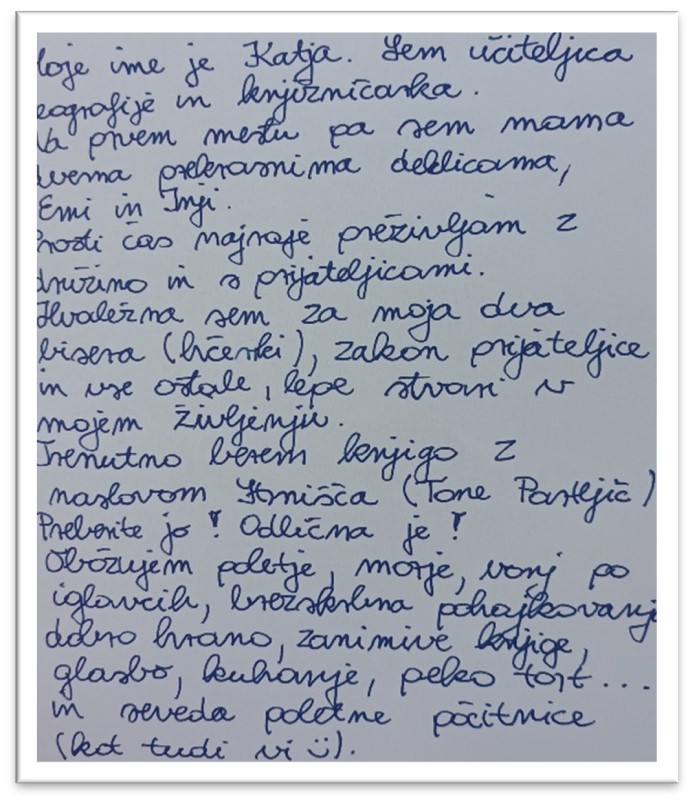 oje ime je Katja. Sem učiteljica
eografije in knjižničarka.
Na prvem mestu pa sem mama
dvema prekrasnima deklicama,
Emi in Inji.
Prosti čas najraje preživljam z
družino in s prijateljicami.
Hvaležna sem za moja dva
bisera (hčerki), zakon prijateljice
in vse ostale, lepe stvari v
mojem življenju.
Trenutno berem knjigo z
naslovom Strnišča (Tone Partljič)
Preberite jo! Odlična je!
Obožujem poletje, morje, vonj po
iglavcih, brezskrbna pohajkovanj
dobro hrano, zanimive knjige,
glasbo, kuhanje, peko tort...
in seveda poletne počitnice
(kot tudi vi :)).